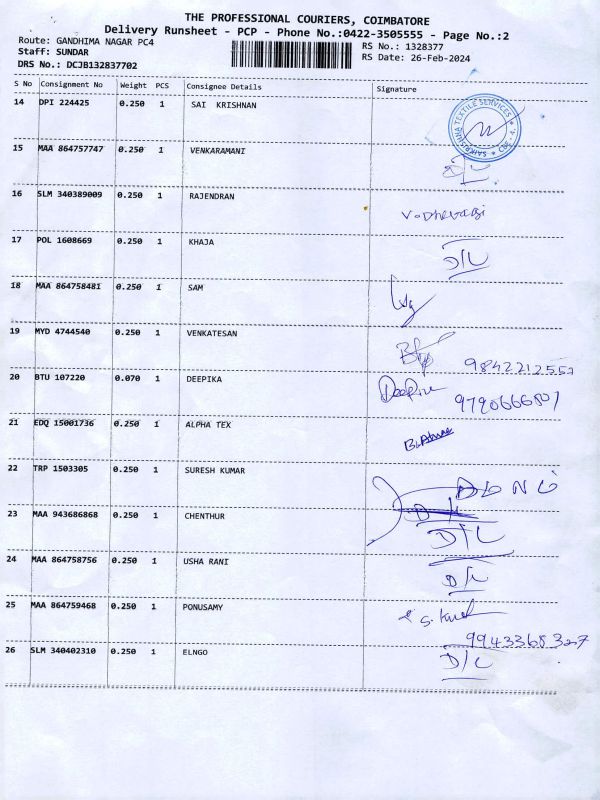 THE PROFESSIONAL COURIERS, COIMBATORE
Delivery Runsheet - PCP - Phone No.:0422-3505555 - Page No.:2
Route: GANDHIMA NAGAR PC4
RS No.: 1328377
Staff: SUNDAR
RS Date: 26-Feb-2024
DRS No.: DCJB132837702
S No Consignment No Weight PCS Consignee Details Signature
14 DPI 224425 0.250 1 SAI KRISHNAN
SAIKRISHNA TEXTILE SERVICES
CBE
15 MAA 864757747 0.250 1 VENKARAMANI
D/L
16 SLM 340389009 0.250 1 RAJENDRAN
17 POL 1608669 0.250 1 KHAJA
D/L
18 MAA 864758481 0.250 1 SAM
19 MYD 4744540 0.250 1 VENKATESAN
9842212557
20 BTU 107220 0.070 1 DEEPIKA
9790666807
21 EDQ 15001736 0.250 1 ALPHA TEX
22 TRP 1503305 0.250 1 SURESH KUMAR
23 MAA 943686868 0.250 1 CHENTHUR
D/L
24 MAA 864758756 0.250 1 USHA RANI
D/L
25 MAA 864759468 0.250 1 PONUSAMY
9943368327
26 SLM 340402310 0.250 1 ELNGO
D/L